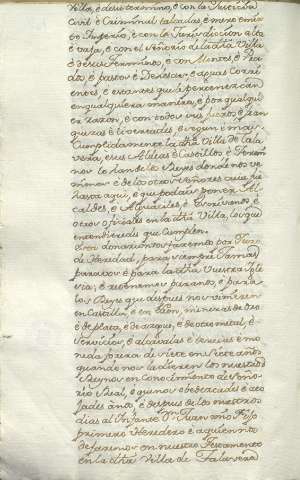 Villa, é de su termino, é con la Justicia
civil é Criminal, alzadas, é mero mix-
to Imperio, é con la Jurisdiccion alta
é vaxa, é con el Señorio de la dha Villa
é de sus Terminos, é con Montes, é Pra-
do, é pastos é Devesas, é aguas Corri-
entes, é estantes que la pertenezcan
en qualquiera manera, é por qualqui-
er razon, é con todos sus fueros, é fran-
quezas é livertades, é segun é mas
Cumplidamente la dha Villa de Tala-
vera, é sus Aldeas é Castillos, é Termi-
nos lo han de los Reyes donde nos ve-
nimos é de los otros Señores cuia fué
hasta aqui, é que podais poner Al-
caldes, é Alguaciles, é Escrivanos, é
otros oficiales en la dha Villa, los que
entendieredes que Cumplen.
donacion vos fazemos por Juro
de Heredad, para siempre Jamas
para vos é para la dha Vuestra Igle-
sia, é retenemos para nos, é para
los Reyes que despues nos vinieren
en Castilla, é en Leon, mineras de Oro
é de plata, é de azogue, é de otro metal, é
servicios, é alcavalas é tercias é mo-
neda forera de siete en siete años
quando nos la dieren los nuestros
Reynos en Conocimiento de Seño-
rio Real, é que nos obedezcades é aco-
jades á nos, é despues de los nuestros
dias al Infante Dn Juan mio Fijo
primero Heredero é aquien to-
en nuestro Testamento
en la dha Villa de Talavera